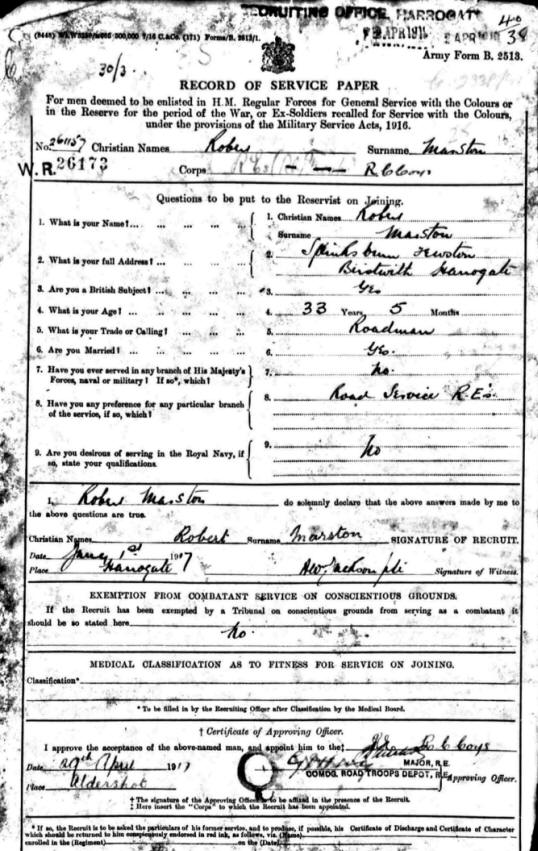 RECRUITING OFFICE, HARROGATE
40
38
(8445) 500,000 7/16 C.&Co. (171) Forms/B. 2513/1.
APR 191
APR 191
Army Form B. 2513.
30/3
RECORD OF SERVICE PAPER
For men deemed to be enlisted in H.M. Regular Forces for General Service with the Colours or
in the Reserve for the period of the War, or Ex-Soldiers recalled for Service with the Colours,
under the provisions of the Military Service Acts, 1916.
No. 261157 Christian Names Robert Surname Marston
W.R. 26173 Corps R.Es R C Coys
Questions to be put to the Reservist on Joining.
1. What is your Name?... 1. Christian Names Robert
Surname Marston
2. What is your full Address? 2. Fewston
Birstwith Harrogate
3. Are you a British Subject? 3. Yes
4. What is your Age? 4. 33 Years 5 Months
5. What is your Trade or Calling? 5. Roadman
6. Are you Married? 6. Yes.
7. Have you ever served in any branch of His Majesty's
Forces, naval or military? If so*, which? 7. No.
8. Have you any preference for any particular branch
of the service, if so, which? 8. Road Service R.E's.
9. Are you desirous of serving in the Royal Navy, if
so, state your qualifications. 9. No
I, Robert Marston do solemnly declare that the above answers made by me to
the above questions are true.
Christian Names Robert Surname Marston SIGNATURE OF RECRUIT.
Date Jany 1st 1917
Place Harrogate Jackson Signature of Witness.
EXEMPTION FROM COMBATANT SERVICE ON CONSCIENTIOUS GROUNDS.
If the Recruit has been exempted by a Tribunal on conscientious grounds from serving as a combatant it
should be so stated here
No.
MEDICAL CLASSIFICATION AS TO FITNESS FOR SERVICE ON JOINING.
Classification*
* To be filled in by the Recruiting Officer after Classification by the Medical Board.
† Certificate of Approving Officer.
I approve the acceptance of the above-named man, and appoint him to the‡ R C Coys
Date 29th April 1917 MAJOR, R.E.
COMDG. ROAD TROOPS DEPOT, R.E. Approving Officer.
Place Aldershot
† The signature of the Approving Officer is to be affixed in the presence of the Recruit.
‡ Here insert the "Corps" to which the Recruit has been appointed.
* If so, the Recruit is to be asked the particulars of his former service, and to produce, if possible, his Certificate of Discharge and Certificate of Character
which should be returned to him conspicuously endorsed in red ink, as follows, viz. (Name)
enrolled in the (Regiment) on the (Date)